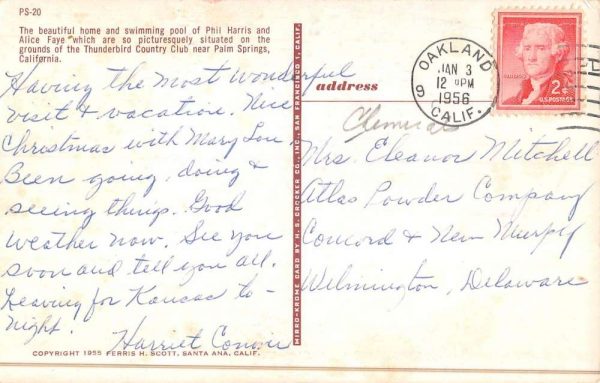 PS-20
The beautiful home and swimming pool of Phil Harris and
Alice Faye which are so picturesquely situated on the
grounds of the Thunderbird Country Club near Palm Springs,
California.
Having the most wonderful
visit & vacation. Nice
Christmas with Mary Lou.
Been going, doing &
seeing things. Good
weather now. See you
soon and tell you all.
Leaving for Kansas to-
night.
Harriet
COPYRIGHT 1955 FERRIS H. SCOTT, SANTA ANA, CALIF.
MIRRO-KROME CARD BY H. S. CROCKER CO., INC., SAN FRANCISCO 1, CALIF.
address
OAKLAND
JAN 3
12 PM
1956
CALIF.
9
2¢
U.S. POSTAGE
Chemicals
Mrs. Eleanor Mitchell
Atlas Powder Company
Concord & New Murphy
Wilmington, Delaware